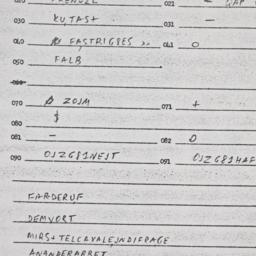 030 KUTAS+ 031 –
040 FASTRIGRES 041 O
050 FALB
060
070 ZOJM 071 +
080 $
081 – 082 O
090 OJZG81NEJT 091 OJZG81HAF
FARDERUF
DEMVORT
MIRS+TELCAVALEJNDIFRAGE
ANANDERARBET